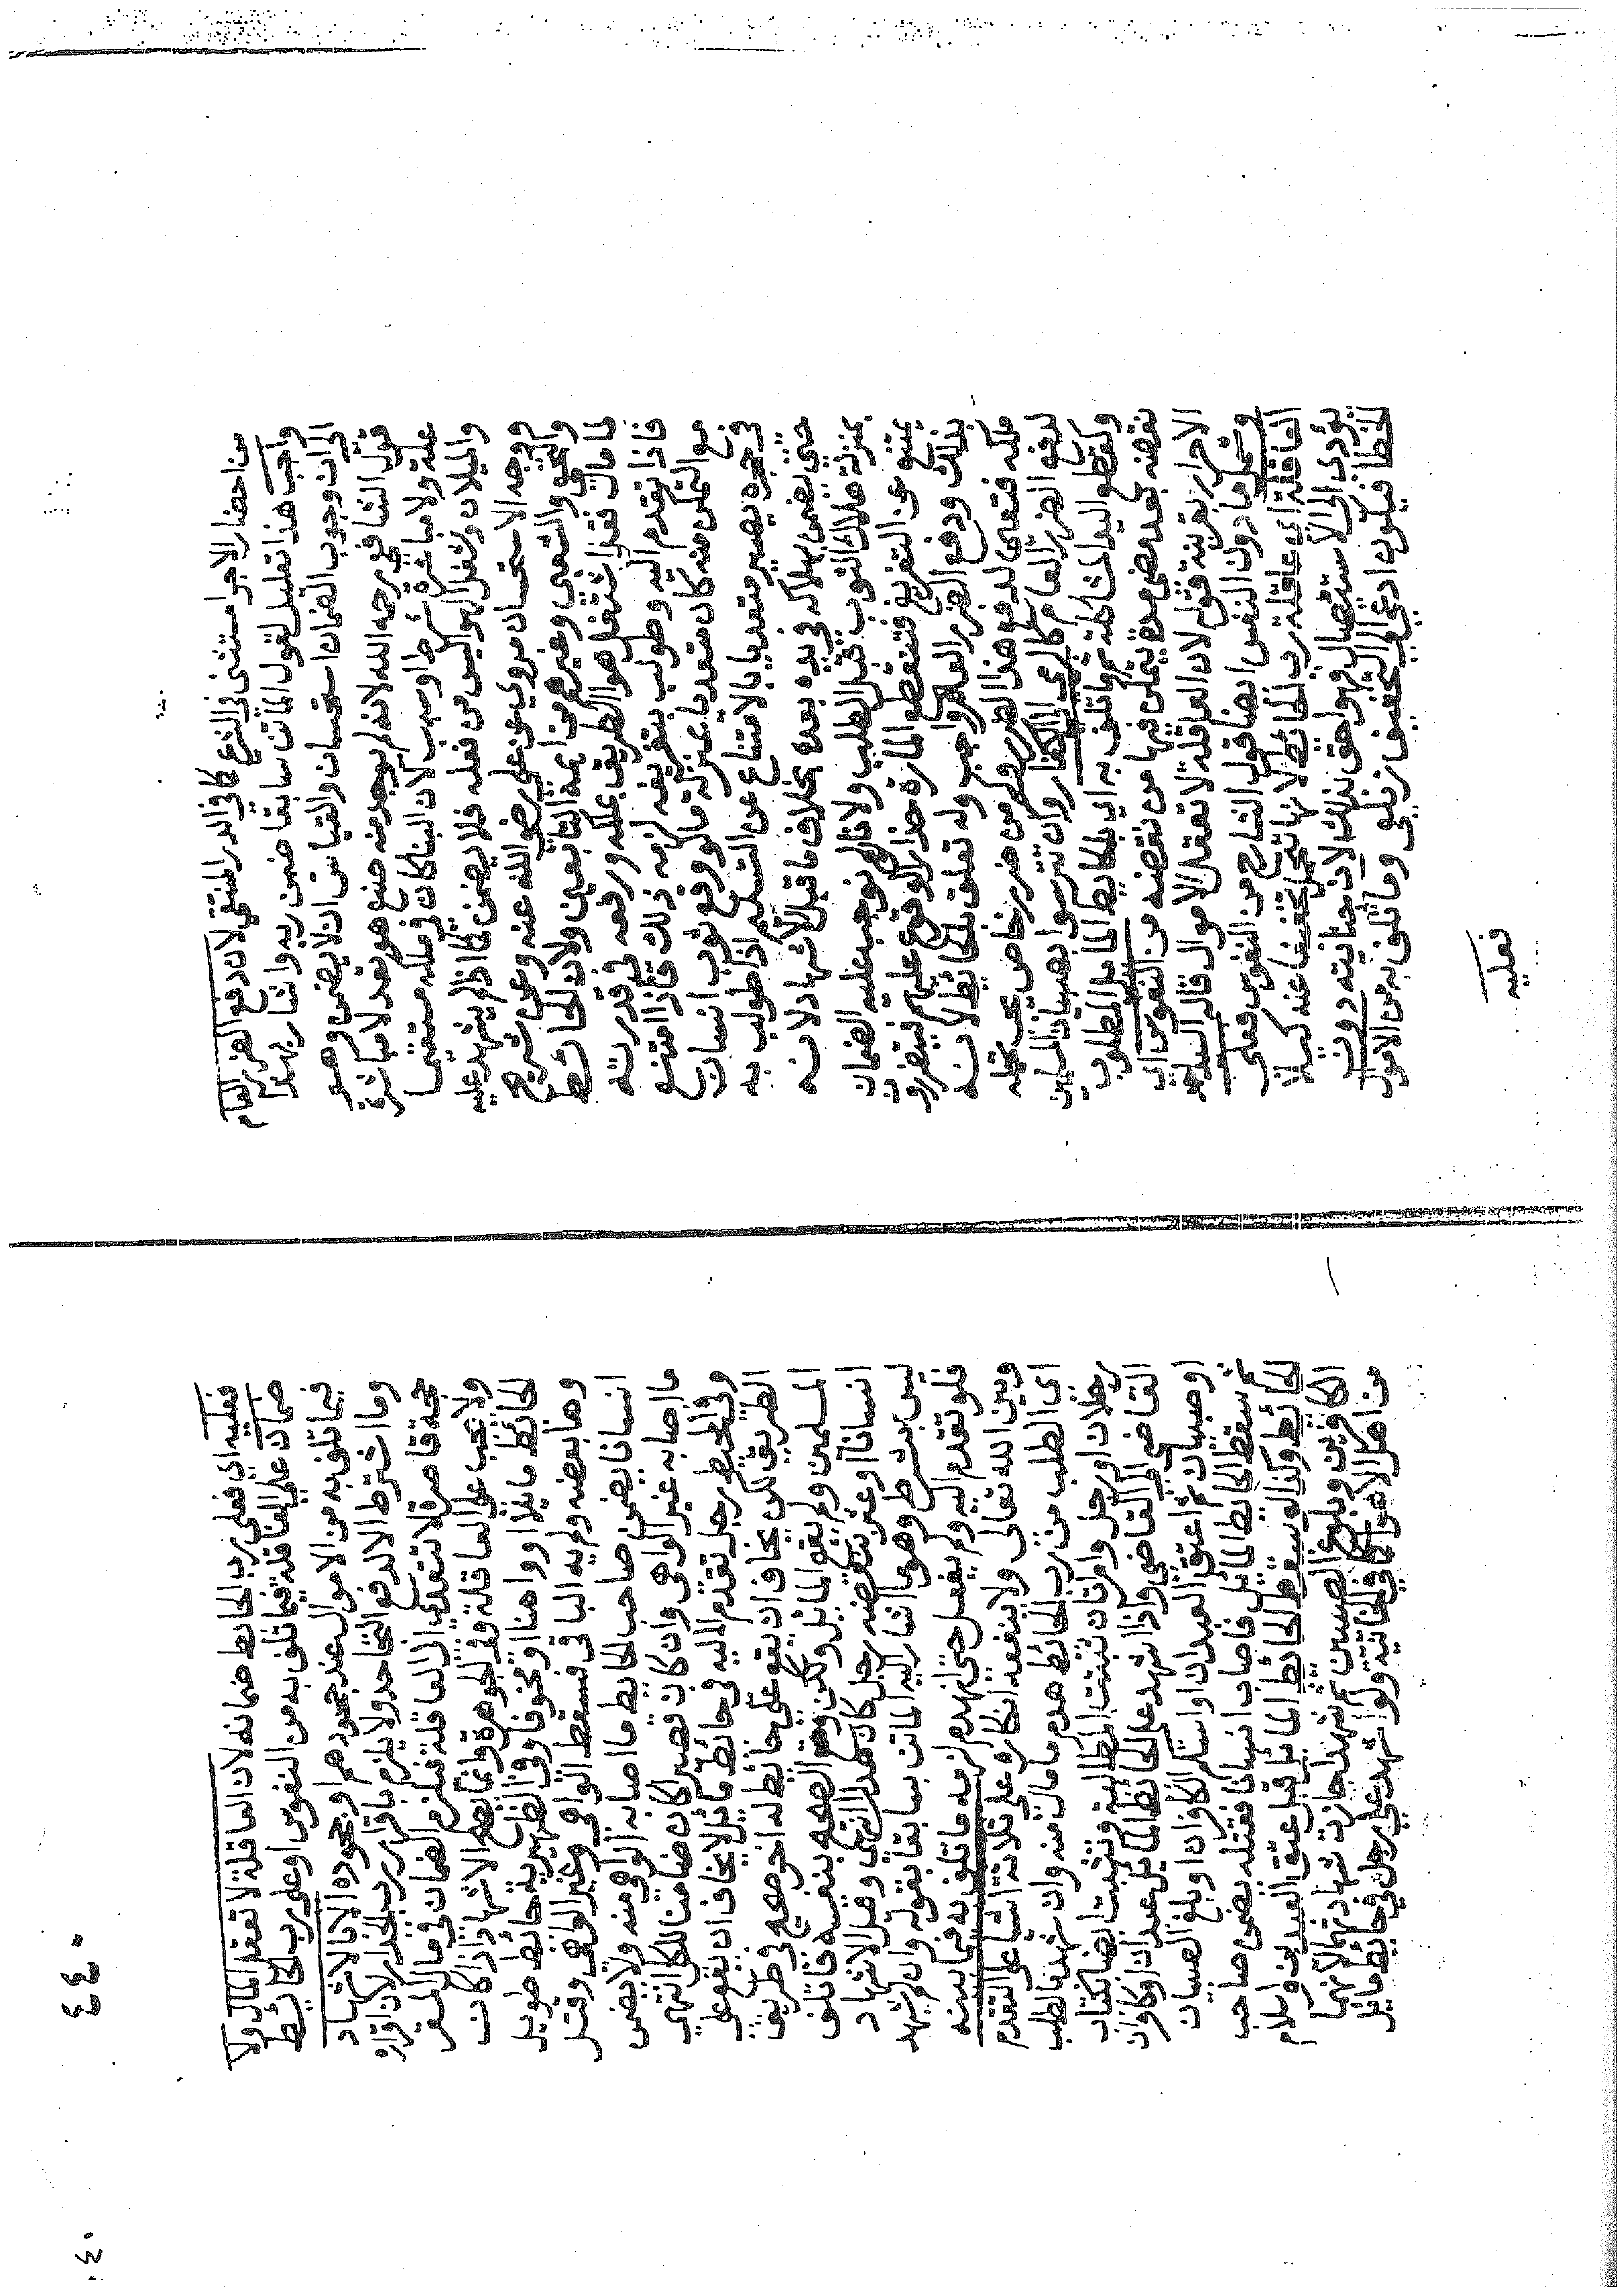 من احضار الاجرا مستثنى في الشرع كما في الدر المنتقى لان دفع الضرر العام
واجب هذا تعليل لقول الماتن سابقا ضمن ربه واشار بهذا
الى ان وجوب الضمان استحسان والقياس ان لا يضمن وهو
قول الشافعي رحمه الله لانه لم يوجد منه صنع هو تعد لا مباشرة
علة ولا مباشرة شرط او سبب لان البنا كان في ملكه مستقيما
والميلان وشغل الهوا ليس من فعله فلا يضمن كما اذا لم يشهد عليه
ووجه الاستحسان مروي عن علي رضي الله عنه وعن شريح
والنخعي والشعبي وغيرهم من ايمة التابعين ولان الحائط
لما مال فقد اشتغل هوا الطريق بملكه ورفعه في قدرته
فاذا تقدم اليه وطولب بتفريغه لزمه ذلك فاذا امتنع
مع التمكن منه كان متعديا بمنزلة ما لو وقع ثوب انسان
في حجره يصير متعديا بالامتناع عن التسليم اذا طولب به
حتى يضمن بهلاكه في يده بعده بخلاف ما قبل الاشهاد لانه
بمنزلة هلاك الثوب قبل الطلب ولانا لو لم نوجب عليه الضمان
يمتنع عن التفريغ فتنقطع المارة حذرا لوقوع عليهم فيتضررون
بذلك ودفع الضرر العام واجب وله تعلق بالحائط لانه
ملكه فتعين لدفع هذا الضرر وكم من ضرر خاص يجب تحمله
لدفع الضرر العام كالرمي الى الكفار وان تترسوا بصبيان المسلمين
وكقطع اليد المتاكلة ثم ما تلف به اي بالحايط المايل المطلوب
نقضه بعد مضي مدة يتمكن فيها من نقضه من النفوس اي
الاحرار بقرينة قولهم لان العاقلة لا تعقل الاموال قاله السيد
وشمل ما دون النفس ايضا قول الشارح من النفوس فعلى
العاقلة اي عاقلة رب الحائط لانها تتحمل تخفيفا عنه كيلا
يؤدي الى الاستئصال فهو احق بذلك لان جنايته دون
الخطا فيكون ادعى الى التخفيف زيلعي وما تلف به من الاموال
فعليه
فعليه اي فعلى رب الحايط ضمانه لان العاقلة لا تعقل المال ولا
ضمان على العاقلة فيما تلف به من النفوس او على رب الحائط
فيما تلف به من الاموال عند جحودهم او جحوده الا بالاشهاد
وما اشترط الا لدفع التجاحد ولا يلزم باقرار رب الجدار لان اقراره
حجة قاصرة لا تتعدى الى العاقلة فيلزم الضمان في مال المقر
ولا يجب على العاقلة وفي الجوهرة وانما يصح الاشهاد اذا كان
الحائط مايلا او واهنا او مخوفا وفي الظهيرية حائط طويل
وها بعضه ولم يه الباقي فسقط الواهي وغير الواهي وقتل
انسانا يضمن صاحب الحايط ما اصابه الواهي منه ولا يضمن
ما اصابه غير الواهي وان كان قصيرا كان ضامنا للكل انتهى
وفي المحيط رجل تقدم اليه في حائط مايل لا يخاف ان يقع على
الطريق لكن يخاف ان يقع على حائط له اخر صحيح في طريق
المسلمين ولم يقع المايل ولكن وقع الصحيح بنفسه فاتلف
انسانا او عثر بنقضه رجل كان هدرا انتهى وقبل الاشهاد
ليس بشرط وهو ما اشار اليه الماتن سابقا بقوله وان لم يشهد
فلو تقدم اليه ولم يفعل حتى انهدم لزمه ما تلف به فيما بينه
وبين الله تعالى ولا ينفعه انكاره على ثلاثة اشيا على التقدم
اي الطلب من رب الحائط هدم ما مال منه وان شهد بالطلب
رجلان او رجل وامراتان ثبتت المطالبة وتثبت ايضا بكتاب
القاضي الى القاضي واذا شهد على الحائط المايل عبدان او كافران
او صبيان ثم اعتق العبدان او اسلم الكافران او بلغ الصبيان
ثم سقط الحايط المايل فاصاب انسانا فقتله يضمن صاحب
الحائط وكذا لو سقط الحائط المايل قبل عتق العبدين واسلام
الكافرين وبلوغ الصبيين ثم شهدا جازت شهادتهما لانهما
من اهل الادا كما في الخانية ولو اشهد على رجل في حائط مايل
٤٤٠